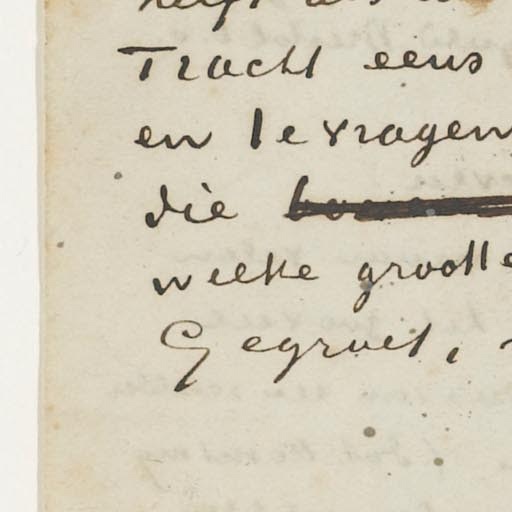 Tracht eens
en te vragen
die
welke grootte
Gegroet,